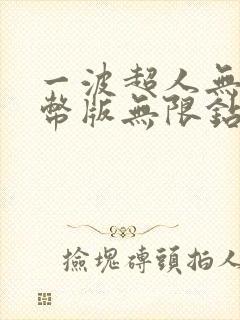 一波超人無
幣版無限鉆
撿塊磚頭拍人